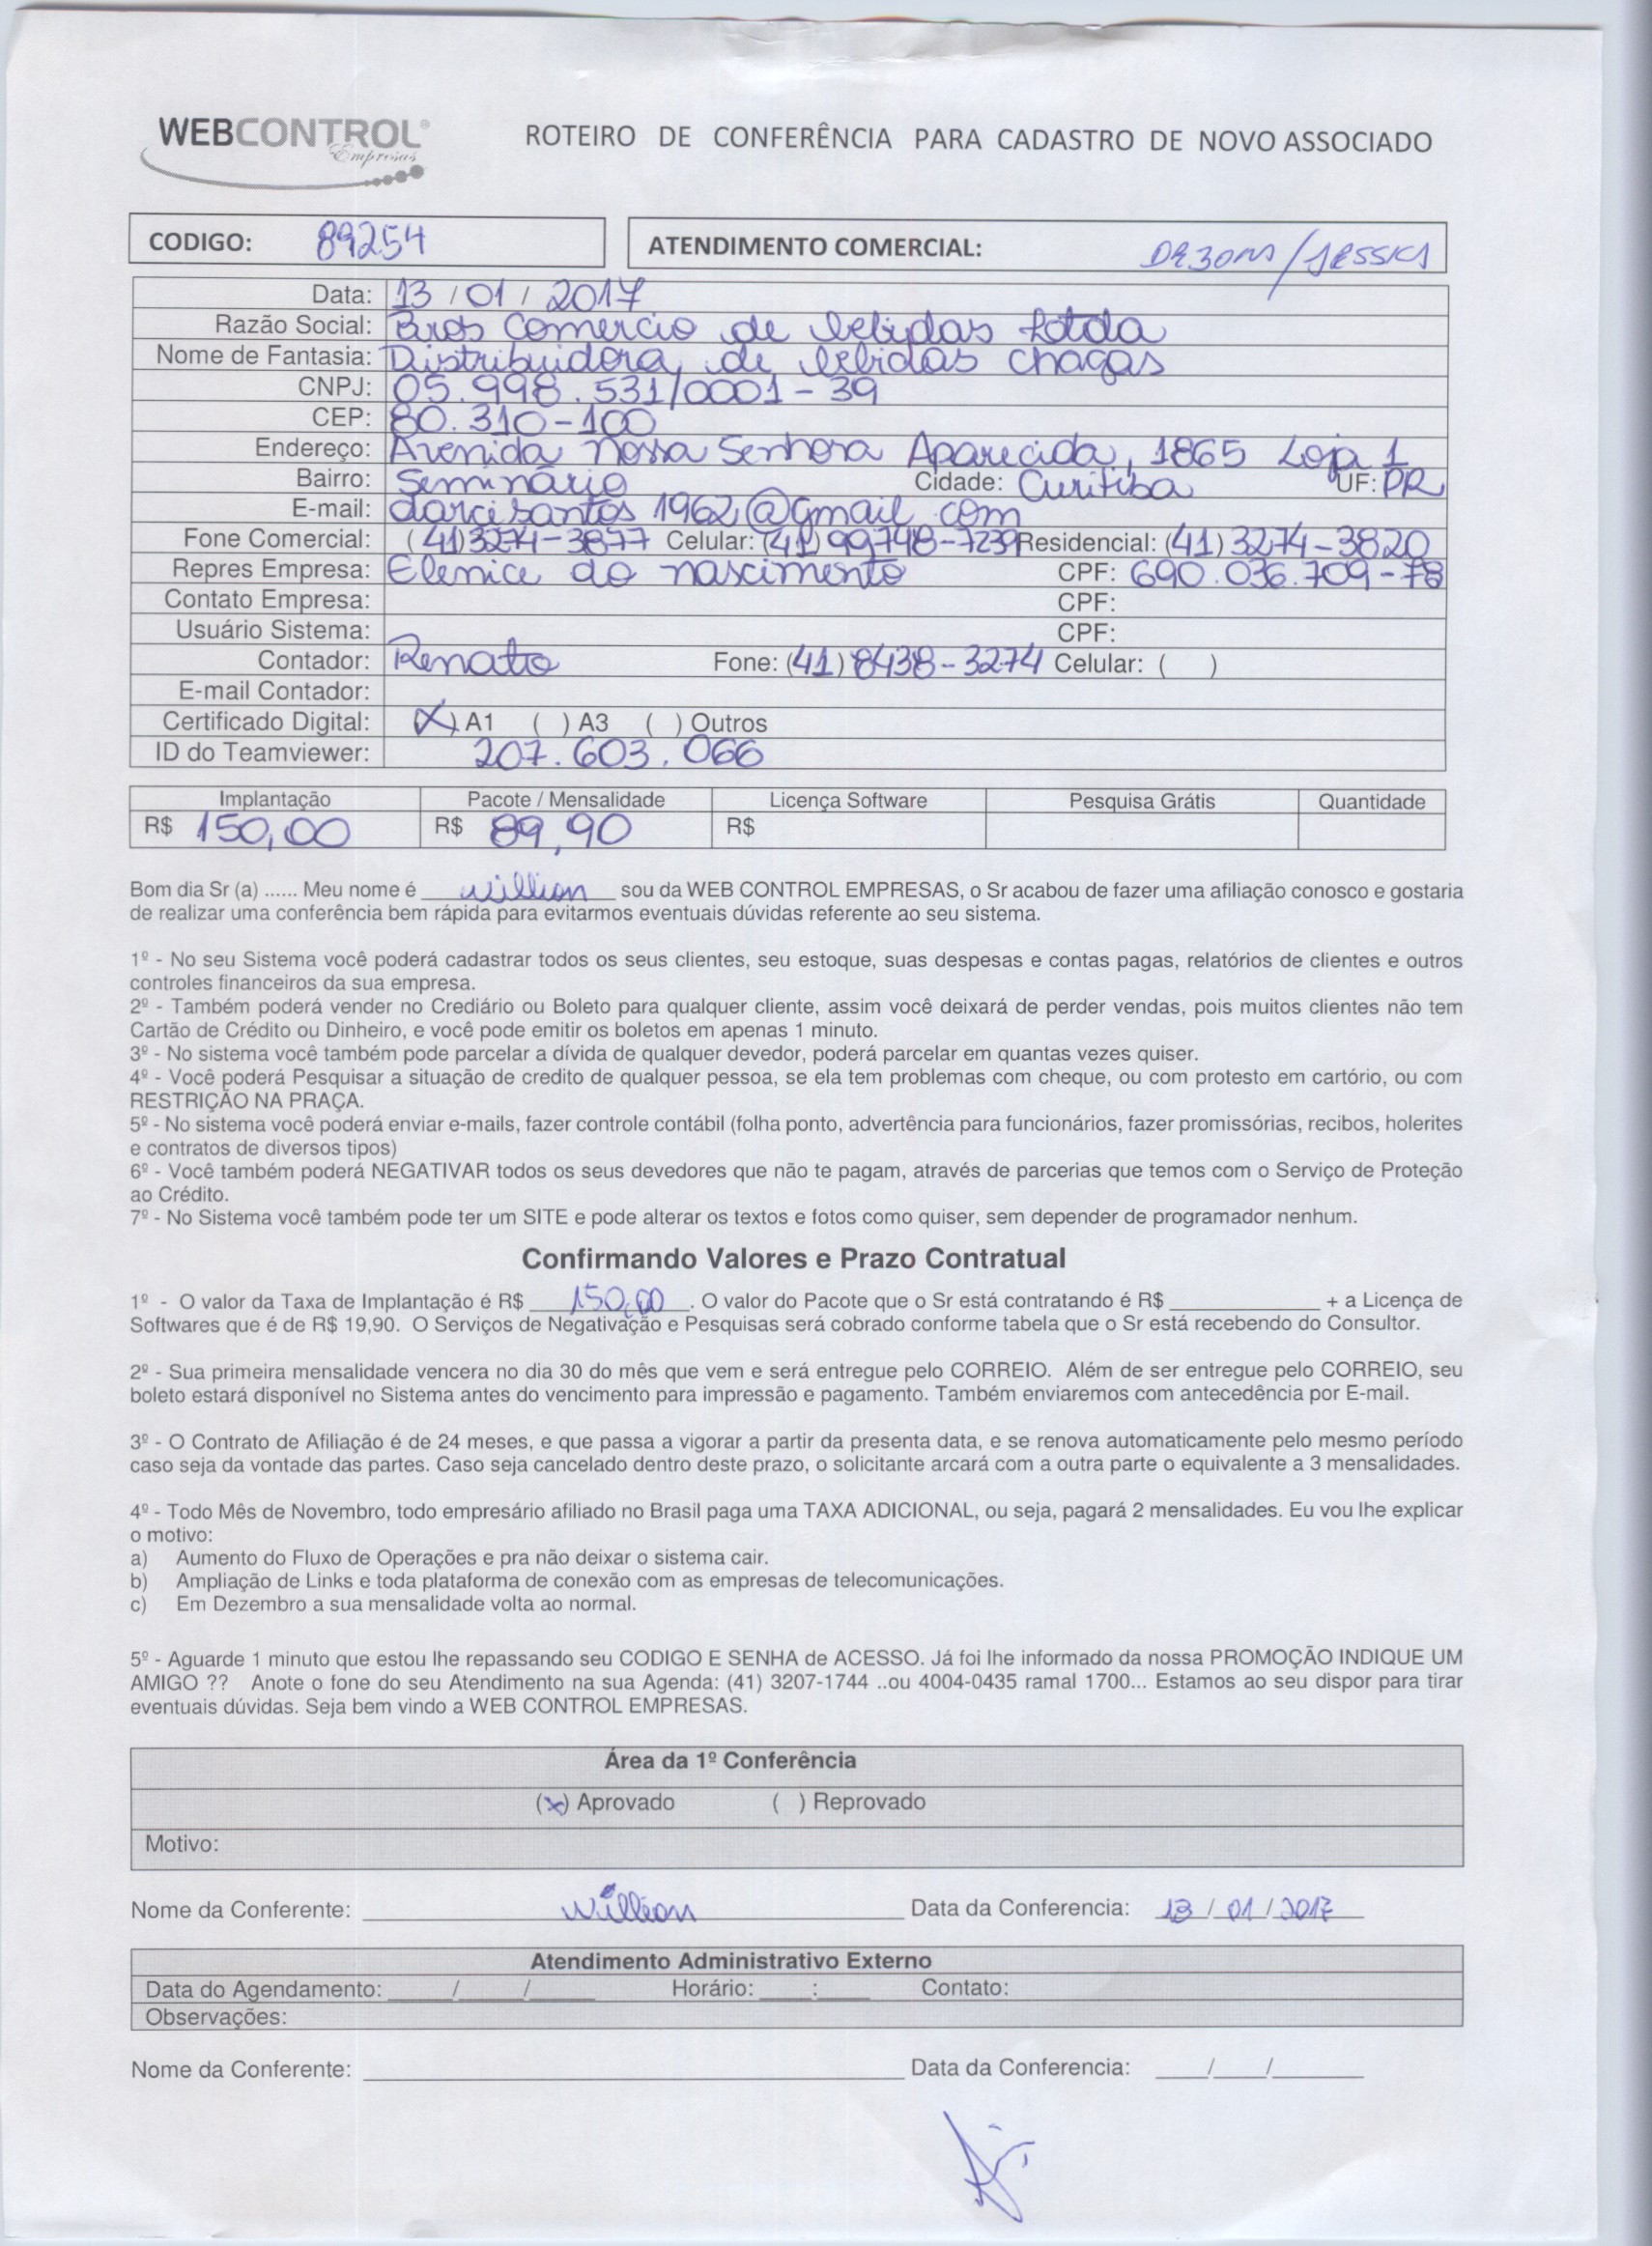 WEBCONTROL®
Empresas
ROTEIRO DE CONFERÊNCIA PARA CADASTRO DE NOVO ASSOCIADO
CODIGO: 89254 ATENDIMENTO COMERCIAL:
Data: 13 / 01 / 2017
Razão Social: Bros Comercio de bebidas Ltda
Nome de Fantasia: Distribuidora de bebidas chagas
CNPJ: 05.998.531/0001-39
CEP: 80.310-100
Endereço: Avenida Nossa Senhora Aparecida, 1865 Loja 1
Bairro: Seminário Cidade: Curitiba UF: PR
E-mail: darcisantos1962@gmail.com
Fone Comercial: (41)3274-3877 Celular: (41) 99748-7239 Residencial: (41) 3274-3820
Repres Empresa: Elenice do nascimento CPF: 690.036.709-78
Contato Empresa: CPF:
Usuário Sistema: CPF:
Contador: Renato Fone: (41) 8438-3274 Celular: ( )
E-mail Contador:
Certificado Digital: (X) A1 ( ) A3 ( ) Outros
ID do Teamviewer: 207.603.066
Implantação Pacote / Mensalidade Licença Software Pesquisa Grátis Quantidade
R$ 150,00 R$ 89,90 R$
Bom dia Sr (a) ...... Meu nome é willian sou da WEB CONTROL EMPRESAS, o Sr acabou de fazer uma afiliação conosco e gostaria
de realizar uma conferência bem rápida para evitarmos eventuais dúvidas referente ao seu sistema.
1º - No seu Sistema você poderá cadastrar todos os seus clientes, seu estoque, suas despesas e contas pagas, relatórios de clientes e outros
controles financeiros da sua empresa.
2º - Também poderá vender no Crediário ou Boleto para qualquer cliente, assim você deixará de perder vendas, pois muitos clientes não tem
Cartão de Crédito ou Dinheiro, e você pode emitir os boletos em apenas 1 minuto.
3º - No sistema você também pode parcelar a dívida de qualquer devedor, poderá parcelar em quantas vezes quiser.
4º - Você poderá Pesquisar a situação de credito de qualquer pessoa, se ela tem problemas com cheque, ou com protesto em cartório, ou com
RESTRIÇÃO NA PRAÇA.
5º - No sistema você poderá enviar e-mails, fazer controle contábil (folha ponto, advertência para funcionários, fazer promissórias, recibos, holerites
e contratos de diversos tipos)
6º - Você também poderá NEGATIVAR todos os seus devedores que não te pagam, através de parcerias que temos com o Serviço de Proteção
ao Crédito.
7º - No Sistema você também pode ter um SITE e pode alterar os textos e fotos como quiser, sem depender de programador nenhum.
Confirmando Valores e Prazo Contratual
1º - O valor da Taxa de Implantação é R$ 150,00. O valor do Pacote que o Sr está contratando é R$ ____________ + a Licença de
Softwares que é de R$ 19,90. O Serviços de Negativação e Pesquisas será cobrado conforme tabela que o Sr está recebendo do Consultor.
2º - Sua primeira mensalidade vencera no dia 30 do mês que vem e será entregue pelo CORREIO. Além de ser entregue pelo CORREIO, seu
boleto estará disponível no Sistema antes do vencimento para impressão e pagamento. Também enviaremos com antecedência por E-mail.
3º - O Contrato de Afiliação é de 24 meses, e que passa a vigorar a partir da presenta data, e se renova automaticamente pelo mesmo período
caso seja da vontade das partes. Caso seja cancelado dentro deste prazo, o solicitante arcará com a outra parte o equivalente a 3 mensalidades.
4º - Todo Mês de Novembro, todo empresário afiliado no Brasil paga uma TAXA ADICIONAL, ou seja, pagará 2 mensalidades. Eu vou lhe explicar
o motivo:
a) Aumento do Fluxo de Operações e pra não deixar o sistema cair.
b) Ampliação de Links e toda plataforma de conexão com as empresas de telecomunicações.
c) Em Dezembro a sua mensalidade volta ao normal.
5º - Aguarde 1 minuto que estou lhe repassando seu CODIGO E SENHA de ACESSO. Já foi lhe informado da nossa PROMOÇÃO INDIQUE UM
AMIGO ?? Anote o fone do seu Atendimento na sua Agenda: (41) 3207-1744 ..ou 4004-0435 ramal 1700... Estamos ao seu dispor para tirar
eventuais dúvidas. Seja bem vindo a WEB CONTROL EMPRESAS.
Área da 1º Conferência
(x) Aprovado ( ) Reprovado
Motivo:
Nome da Conferente: willian Data da Conferencia: 13 / 01 / 2017
Atendimento Administrativo Externo
Data do Agendamento: ____/____/____ Horário: ____:____ Contato:
Observações:
Nome da Conferente: ____________ Data da Conferencia: ____/____/____